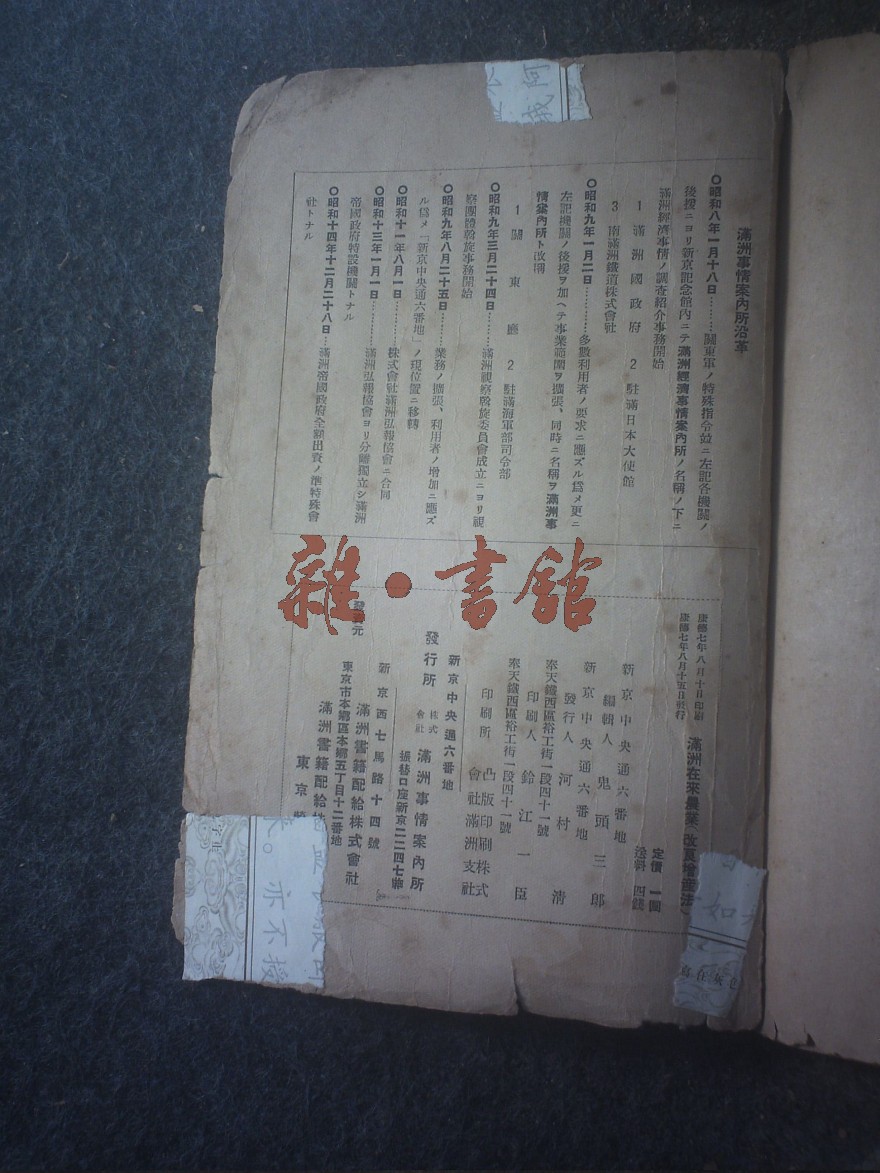 滿洲事情案內所沿革
〇昭和八年一月十八日………關東軍ノ特殊指令竝ニ左記各機關ノ
後援ニヨリ新京記念館內ニテ滿洲經濟事情案內所ノ名稱ノ下ニ
滿洲經濟事情ノ調査紹介事務開始
1 滿洲國政府 2 駐滿日本大使館
3 南滿洲鐵道株式會社
〇昭和九年一月二日………多數利用者ノ要求ニ應ズル爲メ更ニ
左記機關ノ後援ヲ加ヘテ事業範圍ヲ擴張、同時ニ名稱ヲ滿洲事
情案內所ト改稱
1 關東廳 2 駐滿海軍部司令部
〇昭和九年三月二十四日………滿洲視察斡旋委員會成立ニヨリ視
察團體斡旋事務開始
〇昭和九年八月二十五日………業務ノ擴張、利用者ノ增加ニ應ズ
ル爲メ「新京中央通六番地」ノ現位置ニ移轉
〇昭和十一年八月一日………株式會社滿洲弘報協會ニ合同
〇昭和十三年一月一日………滿洲弘報協會ヨリ分離獨立シ滿洲
帝國政府特設機關トナル
〇昭和十四年十二月二十八日…滿洲帝國政府全額出資ノ準特殊會
社トナル
康德七年八月十日印刷
康德七年八月十五日發行
滿洲在來農業ノ改良增產法
定價 一圓
送料 四錢
新京中央通六番地
編輯人 鬼頭三郎
新京中央通六番地
發行人 河村清
奉天鐵西區裕工街一段四十一號
印刷人 鈴江一臣
奉天鐵西區裕工街一段四十一號
印刷所 凸版印刷株式會社滿洲支社
新京中央通六番地
發行所 株式會社 滿洲事情案內所
振替口座新京二二四七番
新京西七馬路十四號
發賣元 滿洲書籍配給株式會社
東京市本鄕區本鄕五丁目十二番地
滿洲書籍配給株
東京
雜·書館
亦不授
如